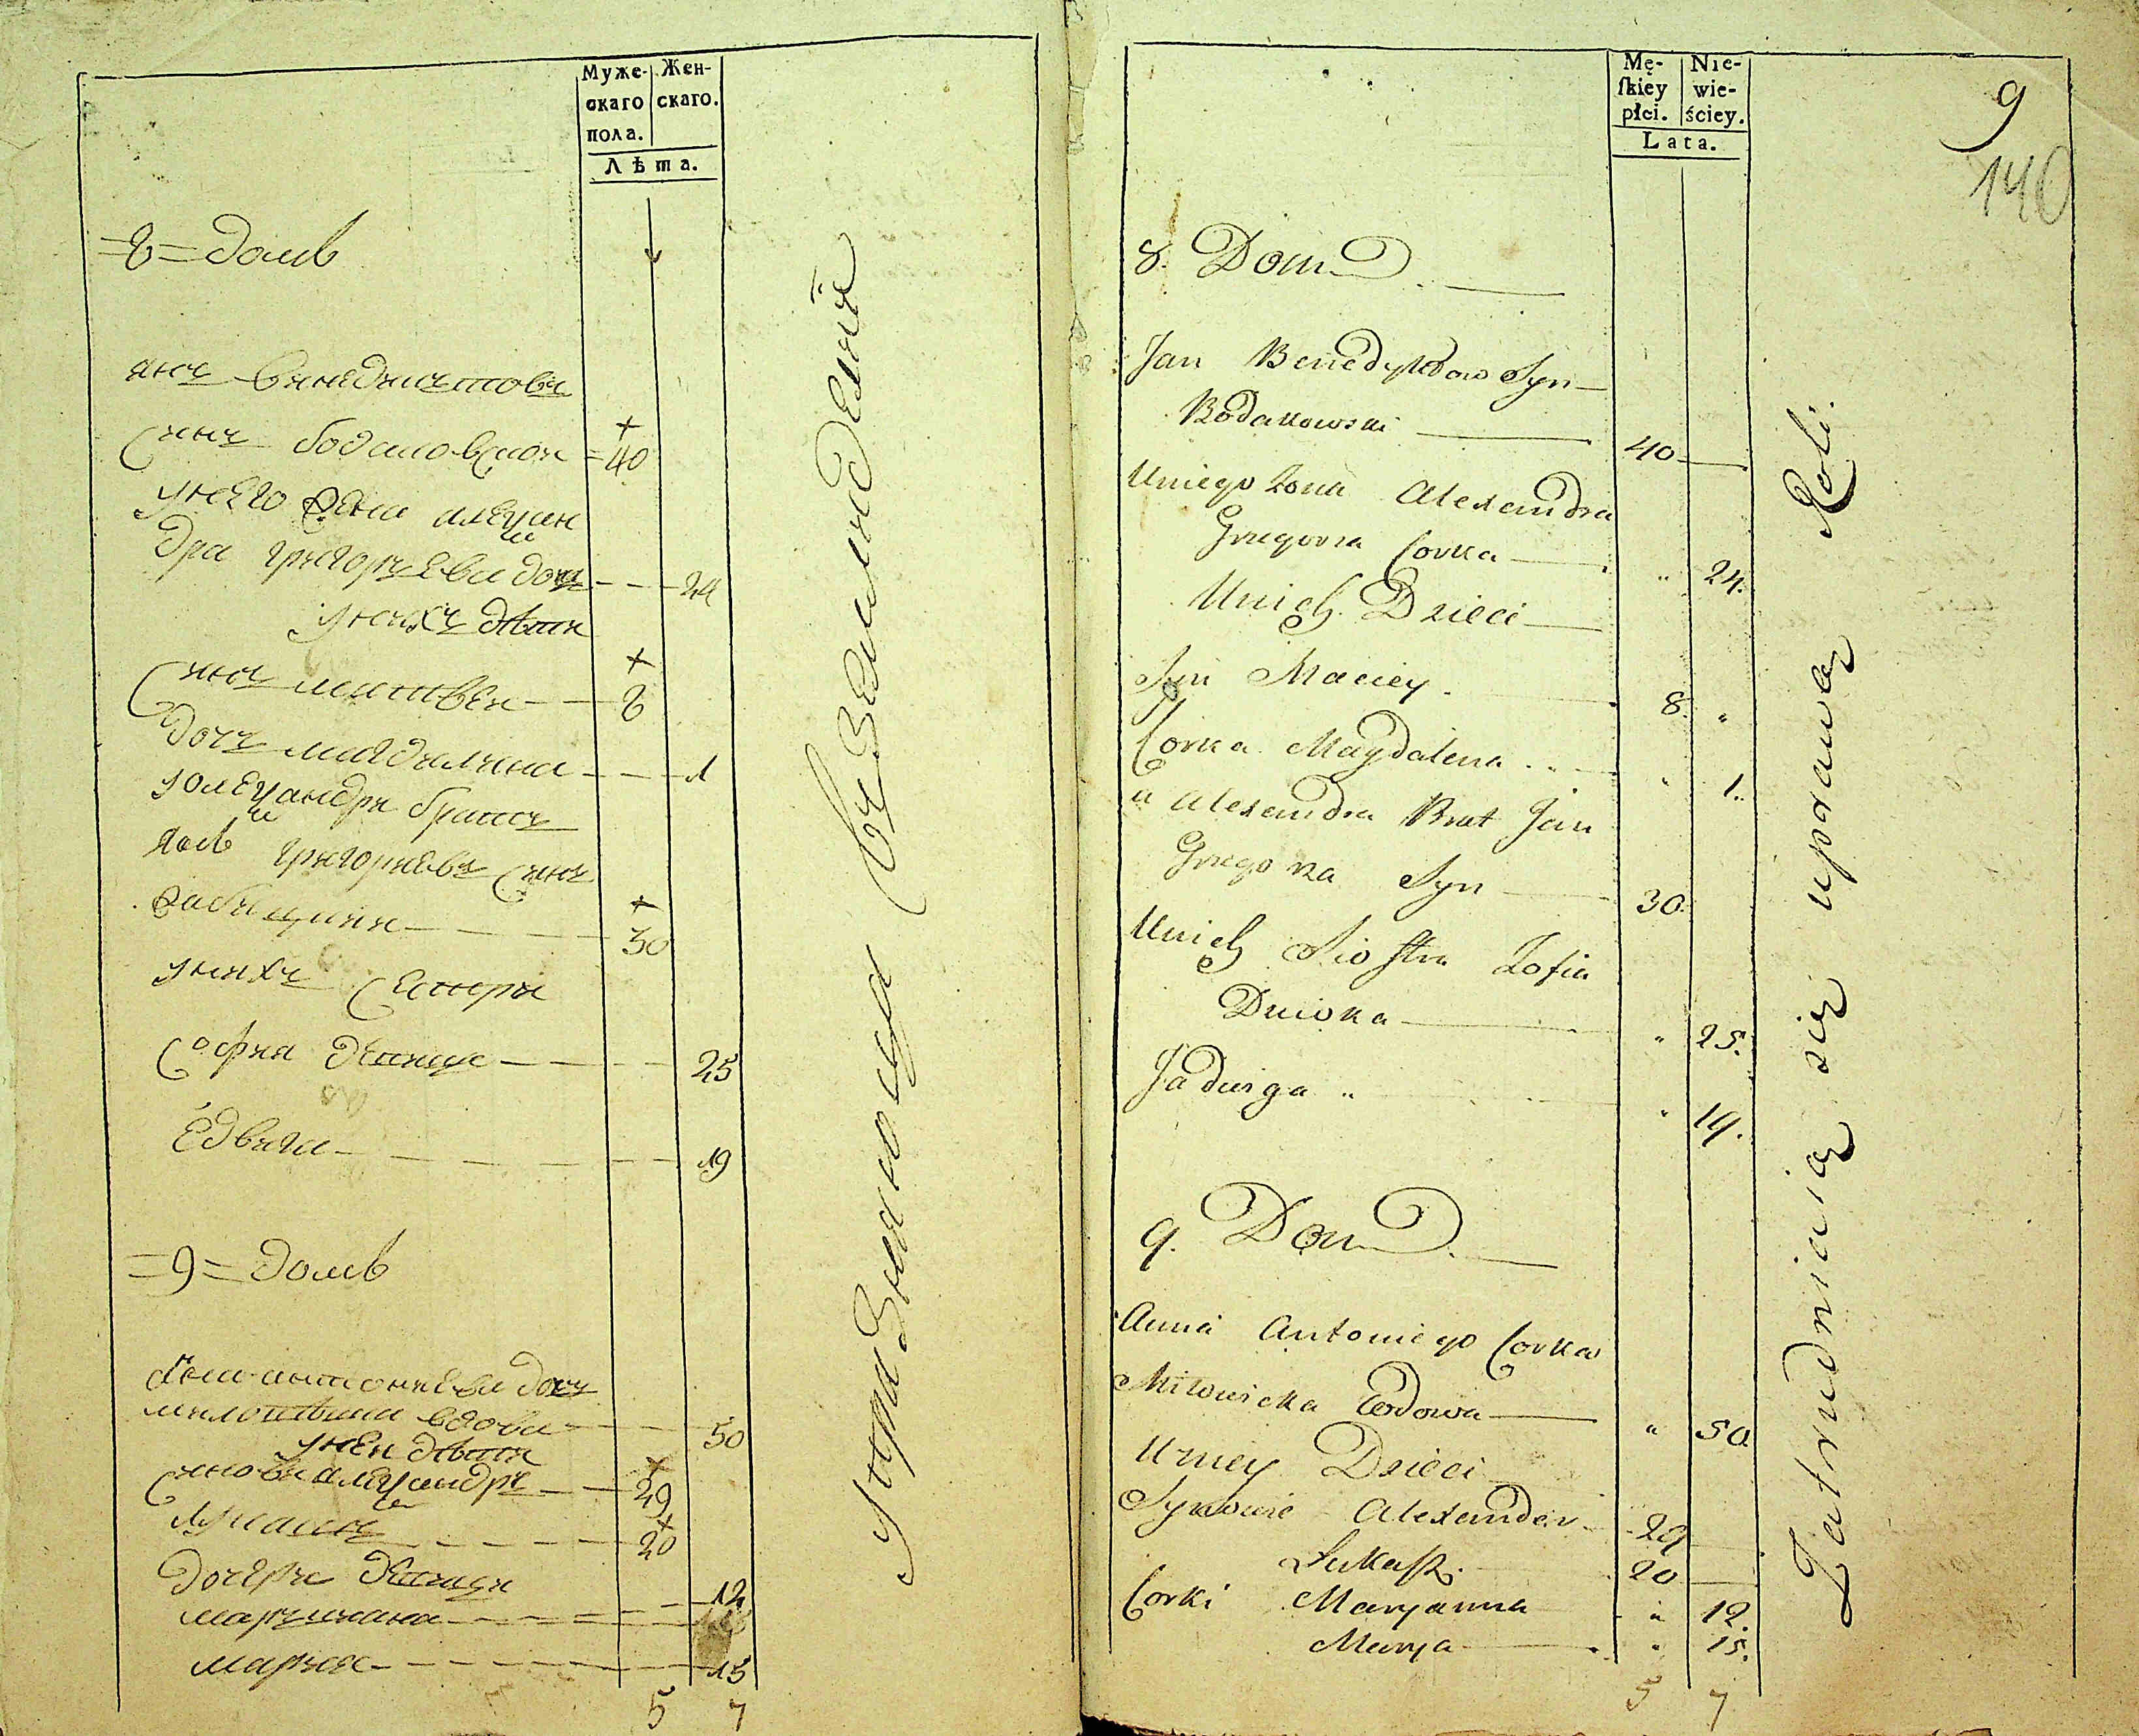 Муже-
скаго
пола.
Жен-
скаго.
Лѣта.
=8= домъ
янъ венедиктовъ
сынъ бодаковски =40
унего жена алексан
дра григорьева дочь - - 24
унихъ дѣти
сынъ матвеи - - 8
дочь магдалина - - - 1
уолександри братъ
янъ григориевъ сынъ
30
унихъ сестри
софия девица - - - 25
едвига - - - 19
=9= домъ
антониева дочь
вдова - - - 50
унеи дѣти
синови александръ - - 29
лукашъ - - - 20
дочери девици
марцияна - - - 12
мария - - - 15
5 7
упражняюца въ земледелии
Mę-
skiey
płci.
Nie-
wie-
ściey.
Lata.
9
140
8. Dom.
Jan Benedyktow Syn
Bodakowski 40
Uniego Zona Alexandra
Grzegorza Corka " 24.
Unich Dzieci
Syn Maciey. 8. "
Corka Magdalena " 1.
u Alexandra Brat Jan
Grzegorza Syn 30.
Unich Siostra Zofia
Dziewka " 25.
Jadwiga " 19.
9. Dom.
Anna Antoniego Corka
Wdowa " 50
U niey Dzieci
Synowie Alexander 29
Łukasz. 20
Corki Maryanna " 12.
Marya " 15.
5 7
Zatrudniaią się uprawą Roli.